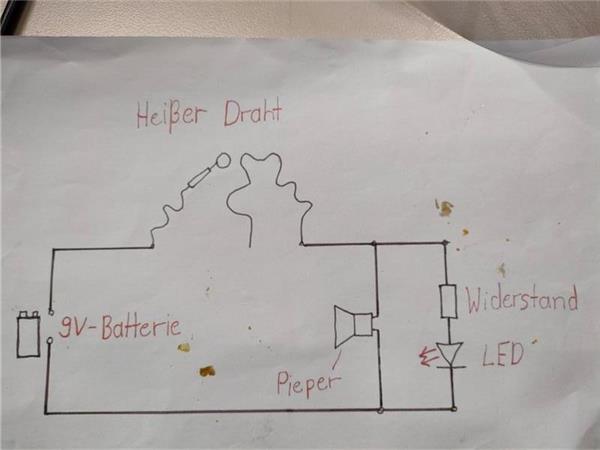 Heißer Draht
9V-Batterie
Widerstand
LED
Pieper